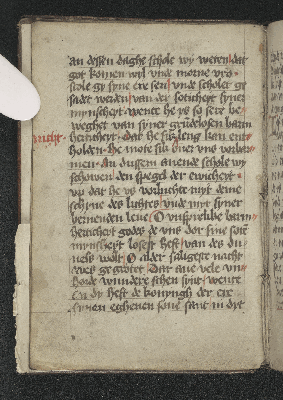 an dessen daghe schole wy weten dat
got komen wyl vnde morne vro
schole gy syne ere seen vnde scholet ge
sadet werden van der soticheyt syner
mynscheyt wente he ys so sere be
weghet van syner grundelosen barm
nicht herticheyt dat he sik leng kan ent
holden he mote sik ouer vns vorbar
men An dussem auende schole wy
schowen den speygel der ewicheyt
vp dat he vs vorluchte myt deme
schyne des luchtes vnde myt syner
bernenden leue O vnsprelike barm
herticheyt godes de vns dor syne sote
mynscheyt losest heft van des du
uels wolt O alder saligeste nacht
wes gegrotet Dat an vele vnn
horde wundere schen synt wente
in dy heft de konnyngh der ere
synen eghenen sone sant in dyt